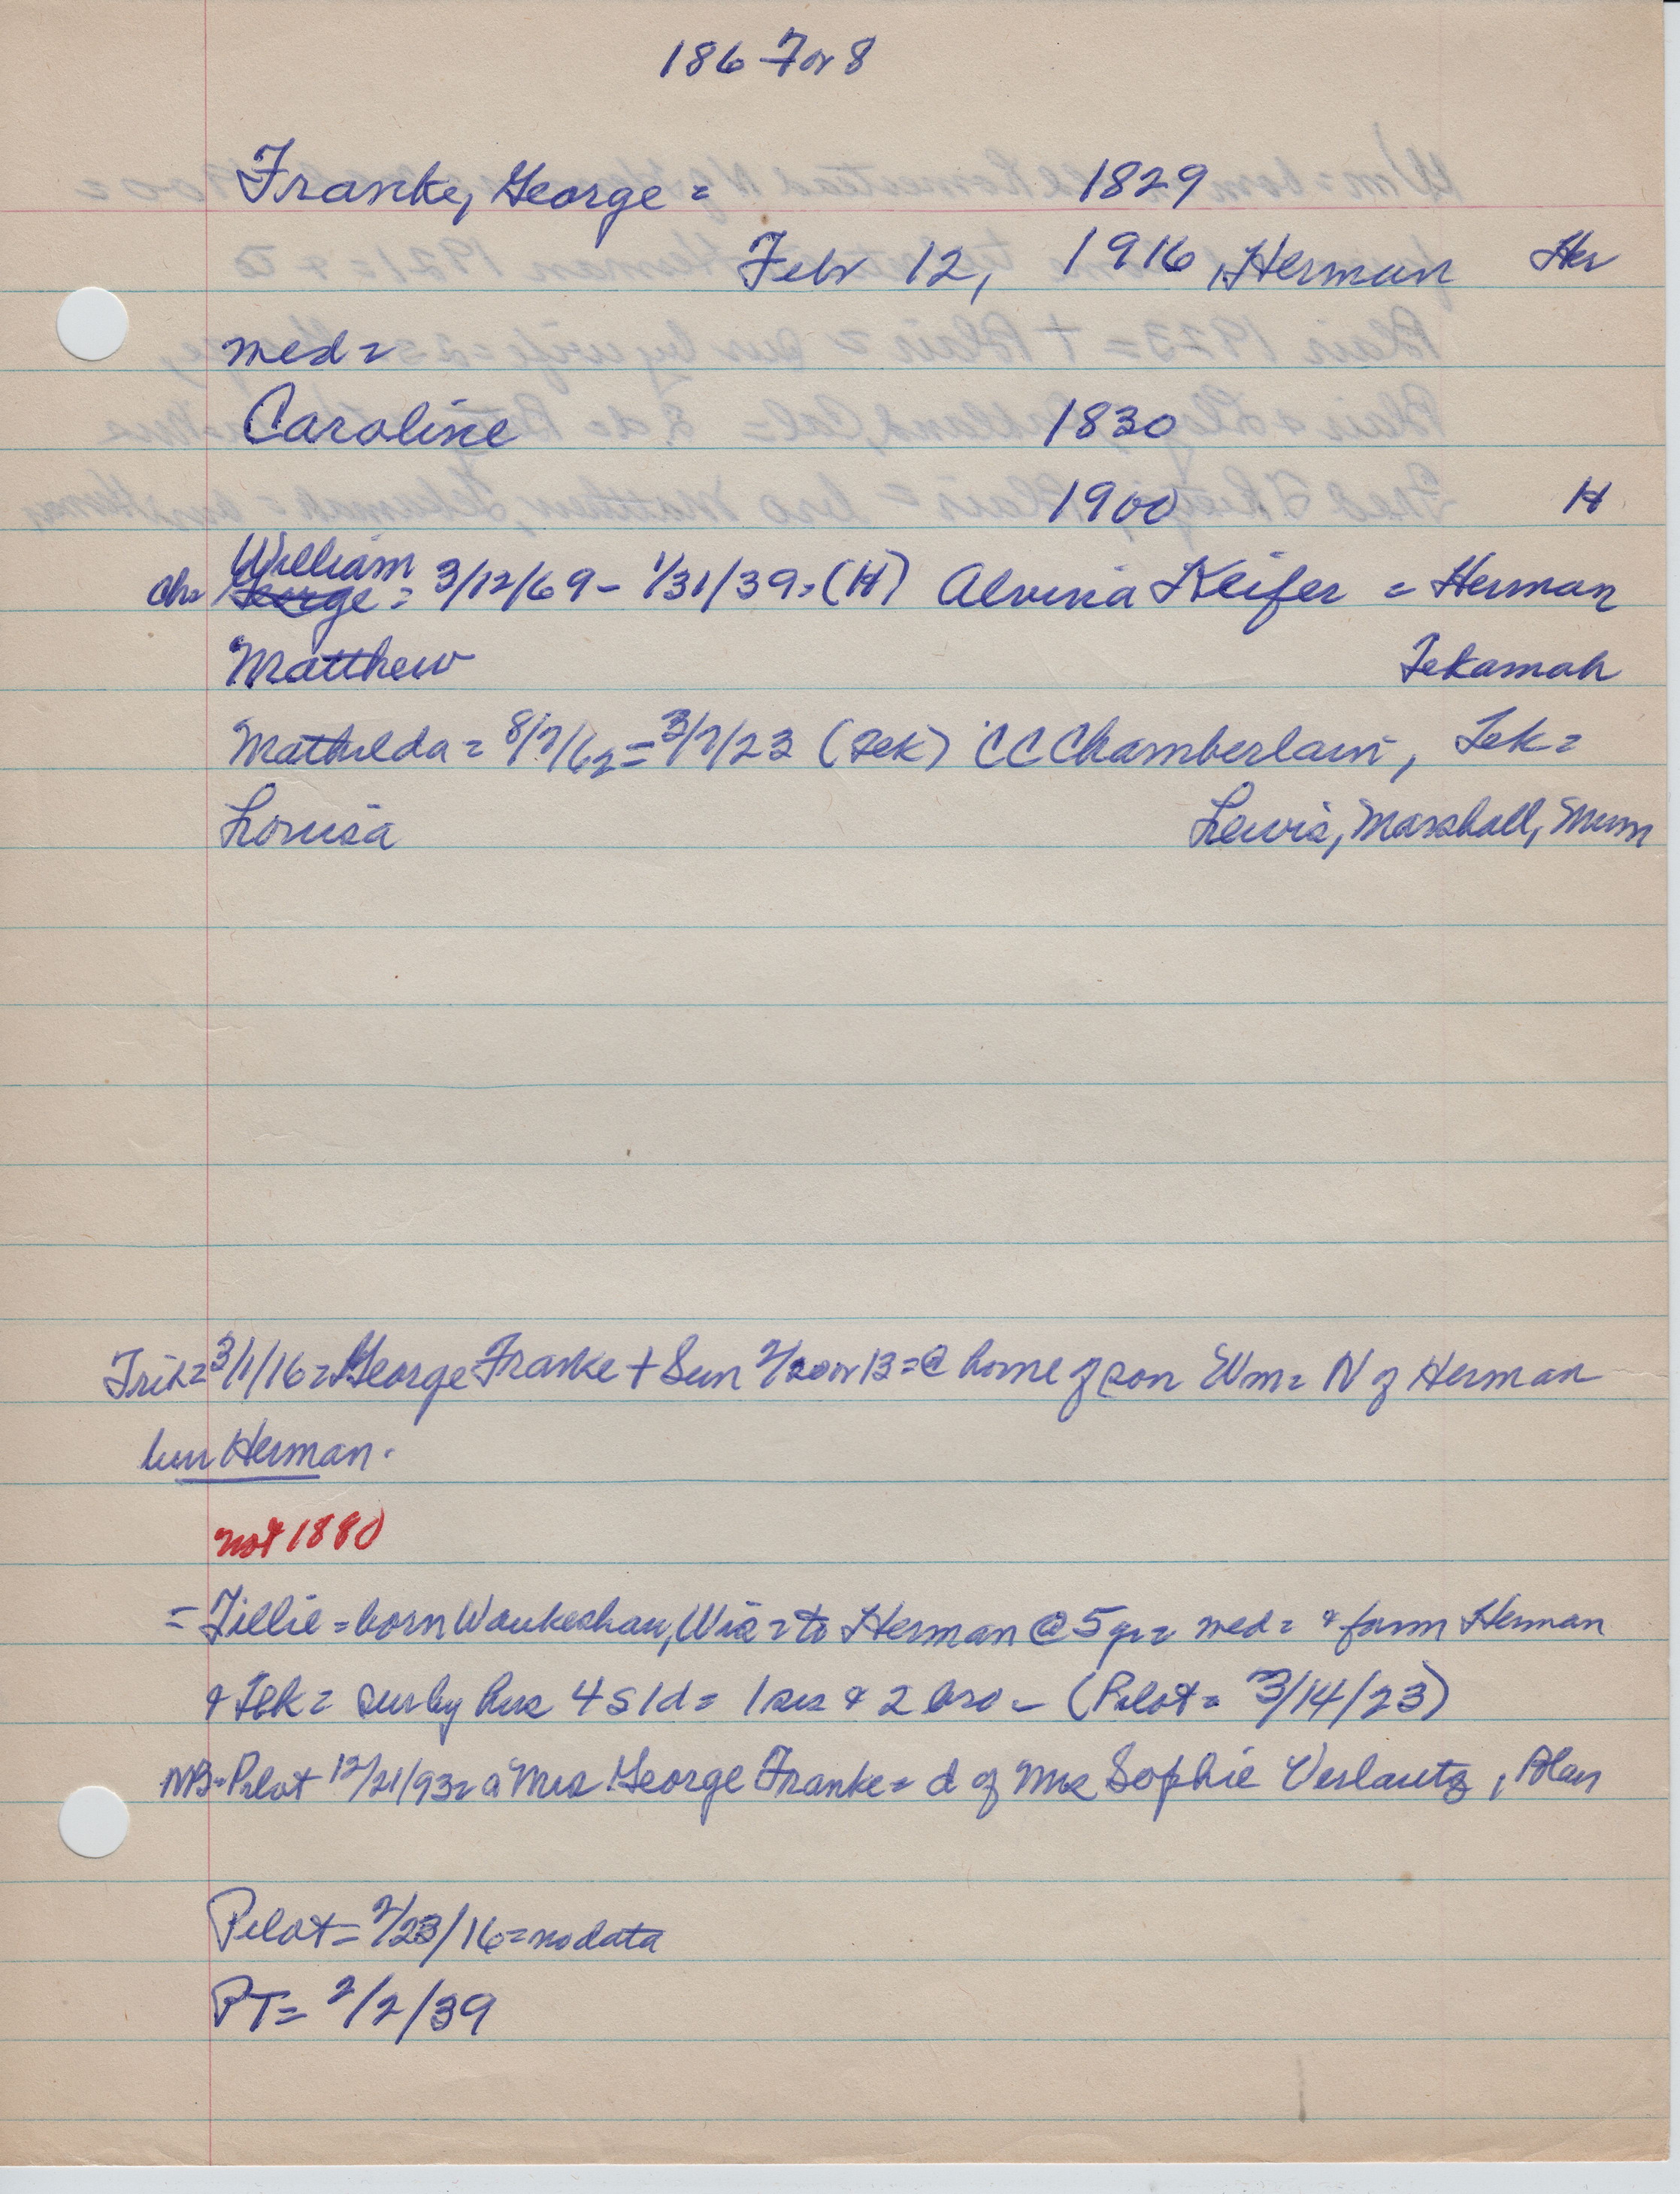 186 7 or 8
Franke, George = 1829
Febr 12, 1916, Herman Her
med =
Caroline 1830
1900 H
William
ch= George = 3/12/69 - 1/31/39 = (H) Alvina Keifer = Herman
Matthew Tekamah
Mathilda = 8/7/62 = 3/7/23 (Tek) CC Chamberlain, Tek =
Louisa Lewis, Marshall, Minn
Trib = 3/1/16 = George Franke + Sun 2/ or 13 = @ home of son Wm = N of Herman
bur Herman.
not 1880
= Tillie = born Waukeshau, Wis = to Herman @ 5 yr = med = & farm Herman
& Tek = sur by hus 4 s 1 d = 1 sis & 2 bro - (Pilot = 3/14/23)
NB = Pilot 12/21/93 = a Mrs George Franke = d of Mrs Sophie Verlautz, Blair
Pilot = 2/23/16 = no data
PT = 2/2/39